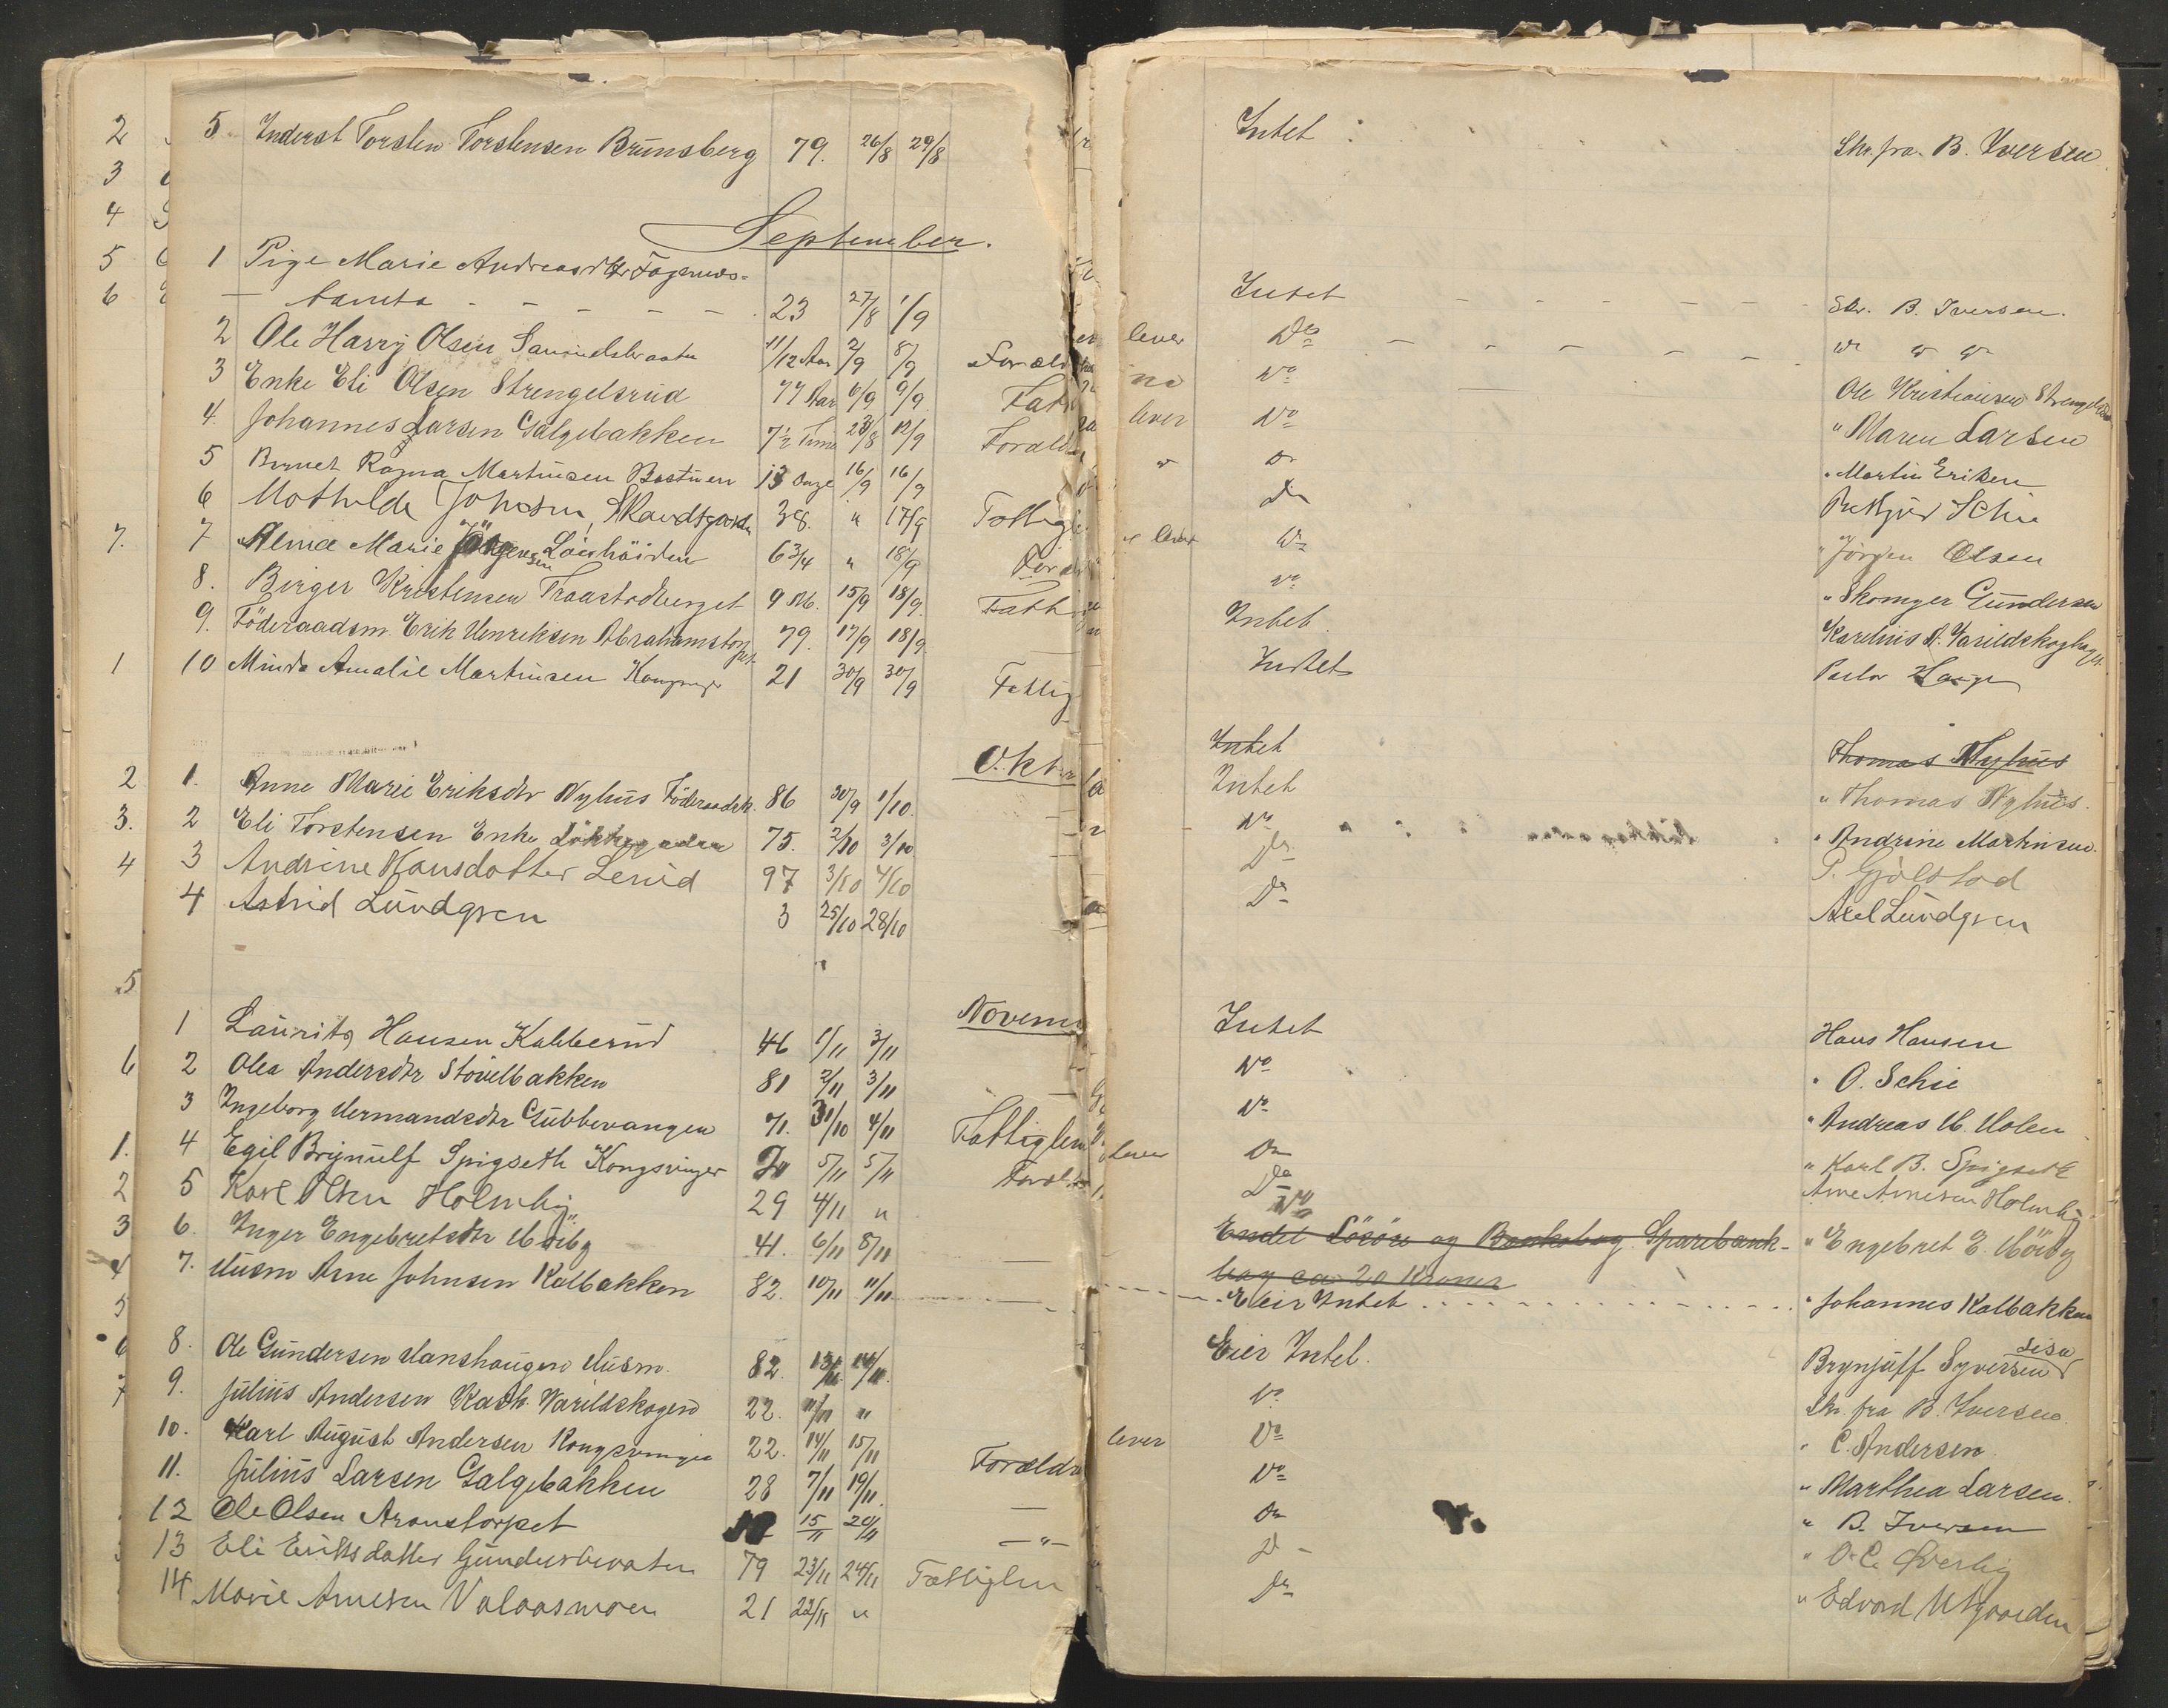 5 Inderst Torsten Torstensen Brunsberg 79. 26/8 29/8 Intet Skr. fra B. Iversen
September.
1 Pige Marie Andreasdtr Fagernes-
— bamsta - - - - - 23 27/8 1/9 Intet - - - - - - Skr. B. Iversen.
2 Ole Harry Olsen 11/12 Aar 2/9 8/9 Foræld lever Do - - - - - -
3 Enke Eli Olsen Strengelsrud 77 Aar 6/9 9/9 Fatt Do Ole Kristiansen
4. Johannes Larsen Galgebakken 7½ Time 28/8 12/9 Foræld lever Do " Maren Larsen
5 Barnet Ragna Martinsen Bastuen 13 Dage 16/9 16/9 " Do " Martin Eriksen
6 Mathilde Johnsen, 38. " 17/9 Fattigl Do Schie
7. 7 Alma Marie Jörgensen 6 3/4 " 18/9 Foræl " lever Do " Jörgen Olsen
8. Birger Kristensen Traastadberget 9 M. 15/9 18/9. Fatti Do " Skomger Gundersen
9. Föderaadsm. Erik Henriksen Abrahamstorpet 79. 17/9 18/9. Intet
1 10 Minda Amalie Martinsen 21 30/9 30/9 Fattig Intet
Oktr
Intet Thomas Nyhus
2 1. Anne Marie Eriksdtr Nyhus Föderaadsk. 86 30/9 1/10. Intet " Thomas Nyhus.
3. 2 Eli Torstensen Enke Lökkegaden 75. 2/10 3/10 Do " Andrine Martinsen.
4 3 Andrine Hansdatter Lerud 97 3/10 4/10 Do P. Gjölstad
4 Astrid Lundgren 3 25/10 28/10 Do Axel Lundgren
5
Novem
1 Laurits Hansen Kabberud 46 1/11 3/11 Intet Hans Hansen
6 2 Olea Andersdtr Stövelbakken 81 2/11 3/11 Do " O. Schie
3 Ingeborg Hermandsdtr Gubbevangen 71. 31/10 4/11 Fattiglem Do " Andreas H. Holen
1. 4 Egil Brynulf Spigseth Kongsvinger 5/11 5/11 Foræl lever Do " Karl B. Spigseth
2 5 Karl Olsen Holmby 29 4/11 " Do Arne Arnesen Holmby
Do
3 6. Inger Engebretsdtr Höiby 41. 6/11 8/11 — Endel Lösöre og Bankobog. Sparebank- " Engebret E. Höiby
bog ca 20 Kroner
4 7. Husm Arne Johnsen Kalbakken 82. 10/11 11/11 Eier Intet " Johannes Kalbakken
5
6 8. Ole Gundersen Manshaugen Husm. 82. 13/11 14/11. Eier Intet. Brynjulf Syversen Lisa
7 9. Julius Andersen Varildskogen 22. 11/11 " Do Skr. fra B. Iversen.
10. Karl August Andersen Kongsvinger 22. 14/11 15/11 Foræld lever Do " C. Andersen.
11. Julius Larsen Galgebakken 28 7/11 19/11. — Do " Marthea Larsen.
12 Ole Olsen Aronstorpet 15/11 20/11 —"— Do " B. Iversen
13 Eli Eriksdatter Gundersbraaten 79 23/11 24/11 Fattiglem D - " O. C. Överby
14 Marie Arnesen Valaasmoen 21 22/11 " Do " Edvard Utgaarden